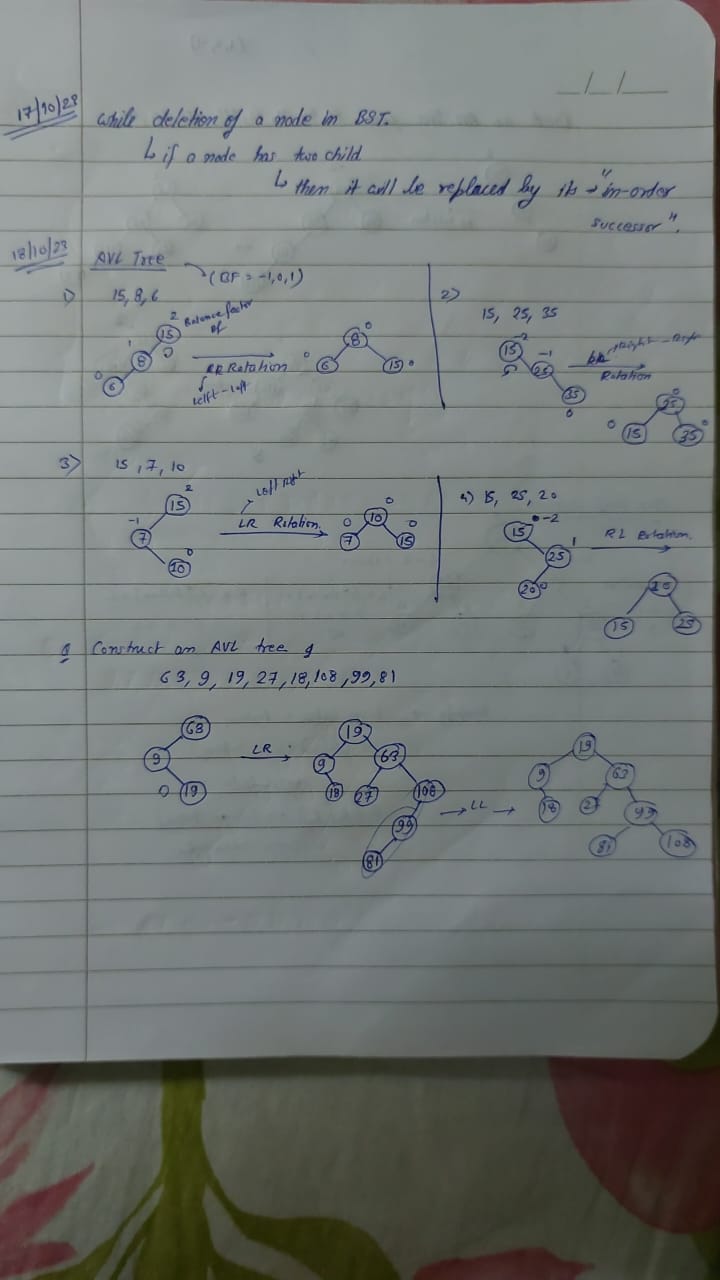 _/_/__
17/10/23 while deletion of a node in BST.
↳ if a node has two child
↳ then it will be replaced by its → "in-order
successor".
18/10/23 AVL Tree
→ (BF = -1,0,1)
1) 15, 8, 6
2 Balance factor
of
15
1
8
0
6
RR Rotation
Lelft-left
0
8
0
6
15
0
2)
15, 25, 35
-2
15
-1
25
35
0
Right - Right
Rotation
0
25
0
15
0
35
3) 15, 7, 10
2
15
-1
7
0
10
Left Right
LR Rotation
0
10
0
7
0
15
4) 15, 25, 20
-2
15
1
25
20
0
RL Rotation.
20
15
25
Q Construct an AVL tree of
63, 9, 19, 27, 18, 108, 99, 81
63
9
0
19
LR
19
9
63
18
27
108
99
81
→ LL →
19
9
63
18
27
99
81
108